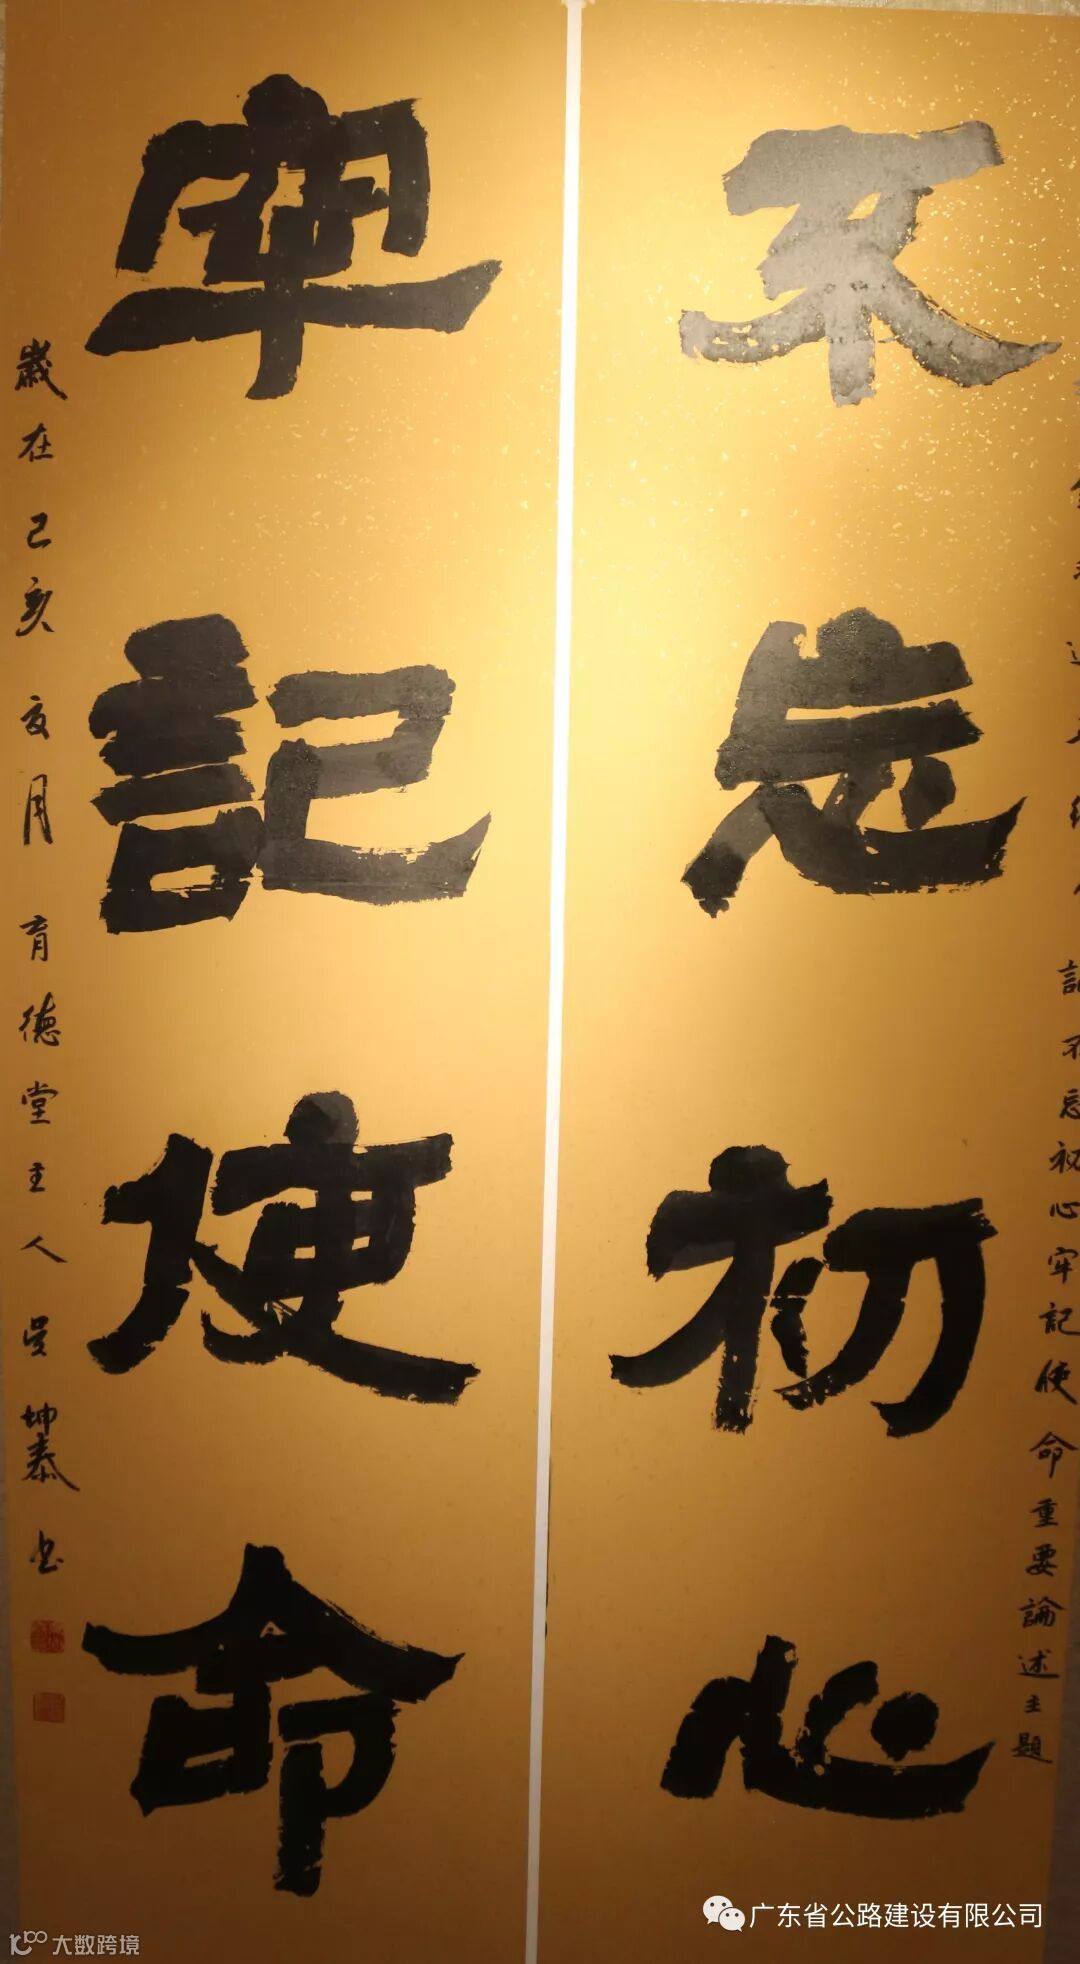 不忘初心
牢記使命
記不忘初心牢記使命重要論述主題
歲在己亥亥月育德堂主人吳坤泰书
广东省公路建设有限公司
大数跨境